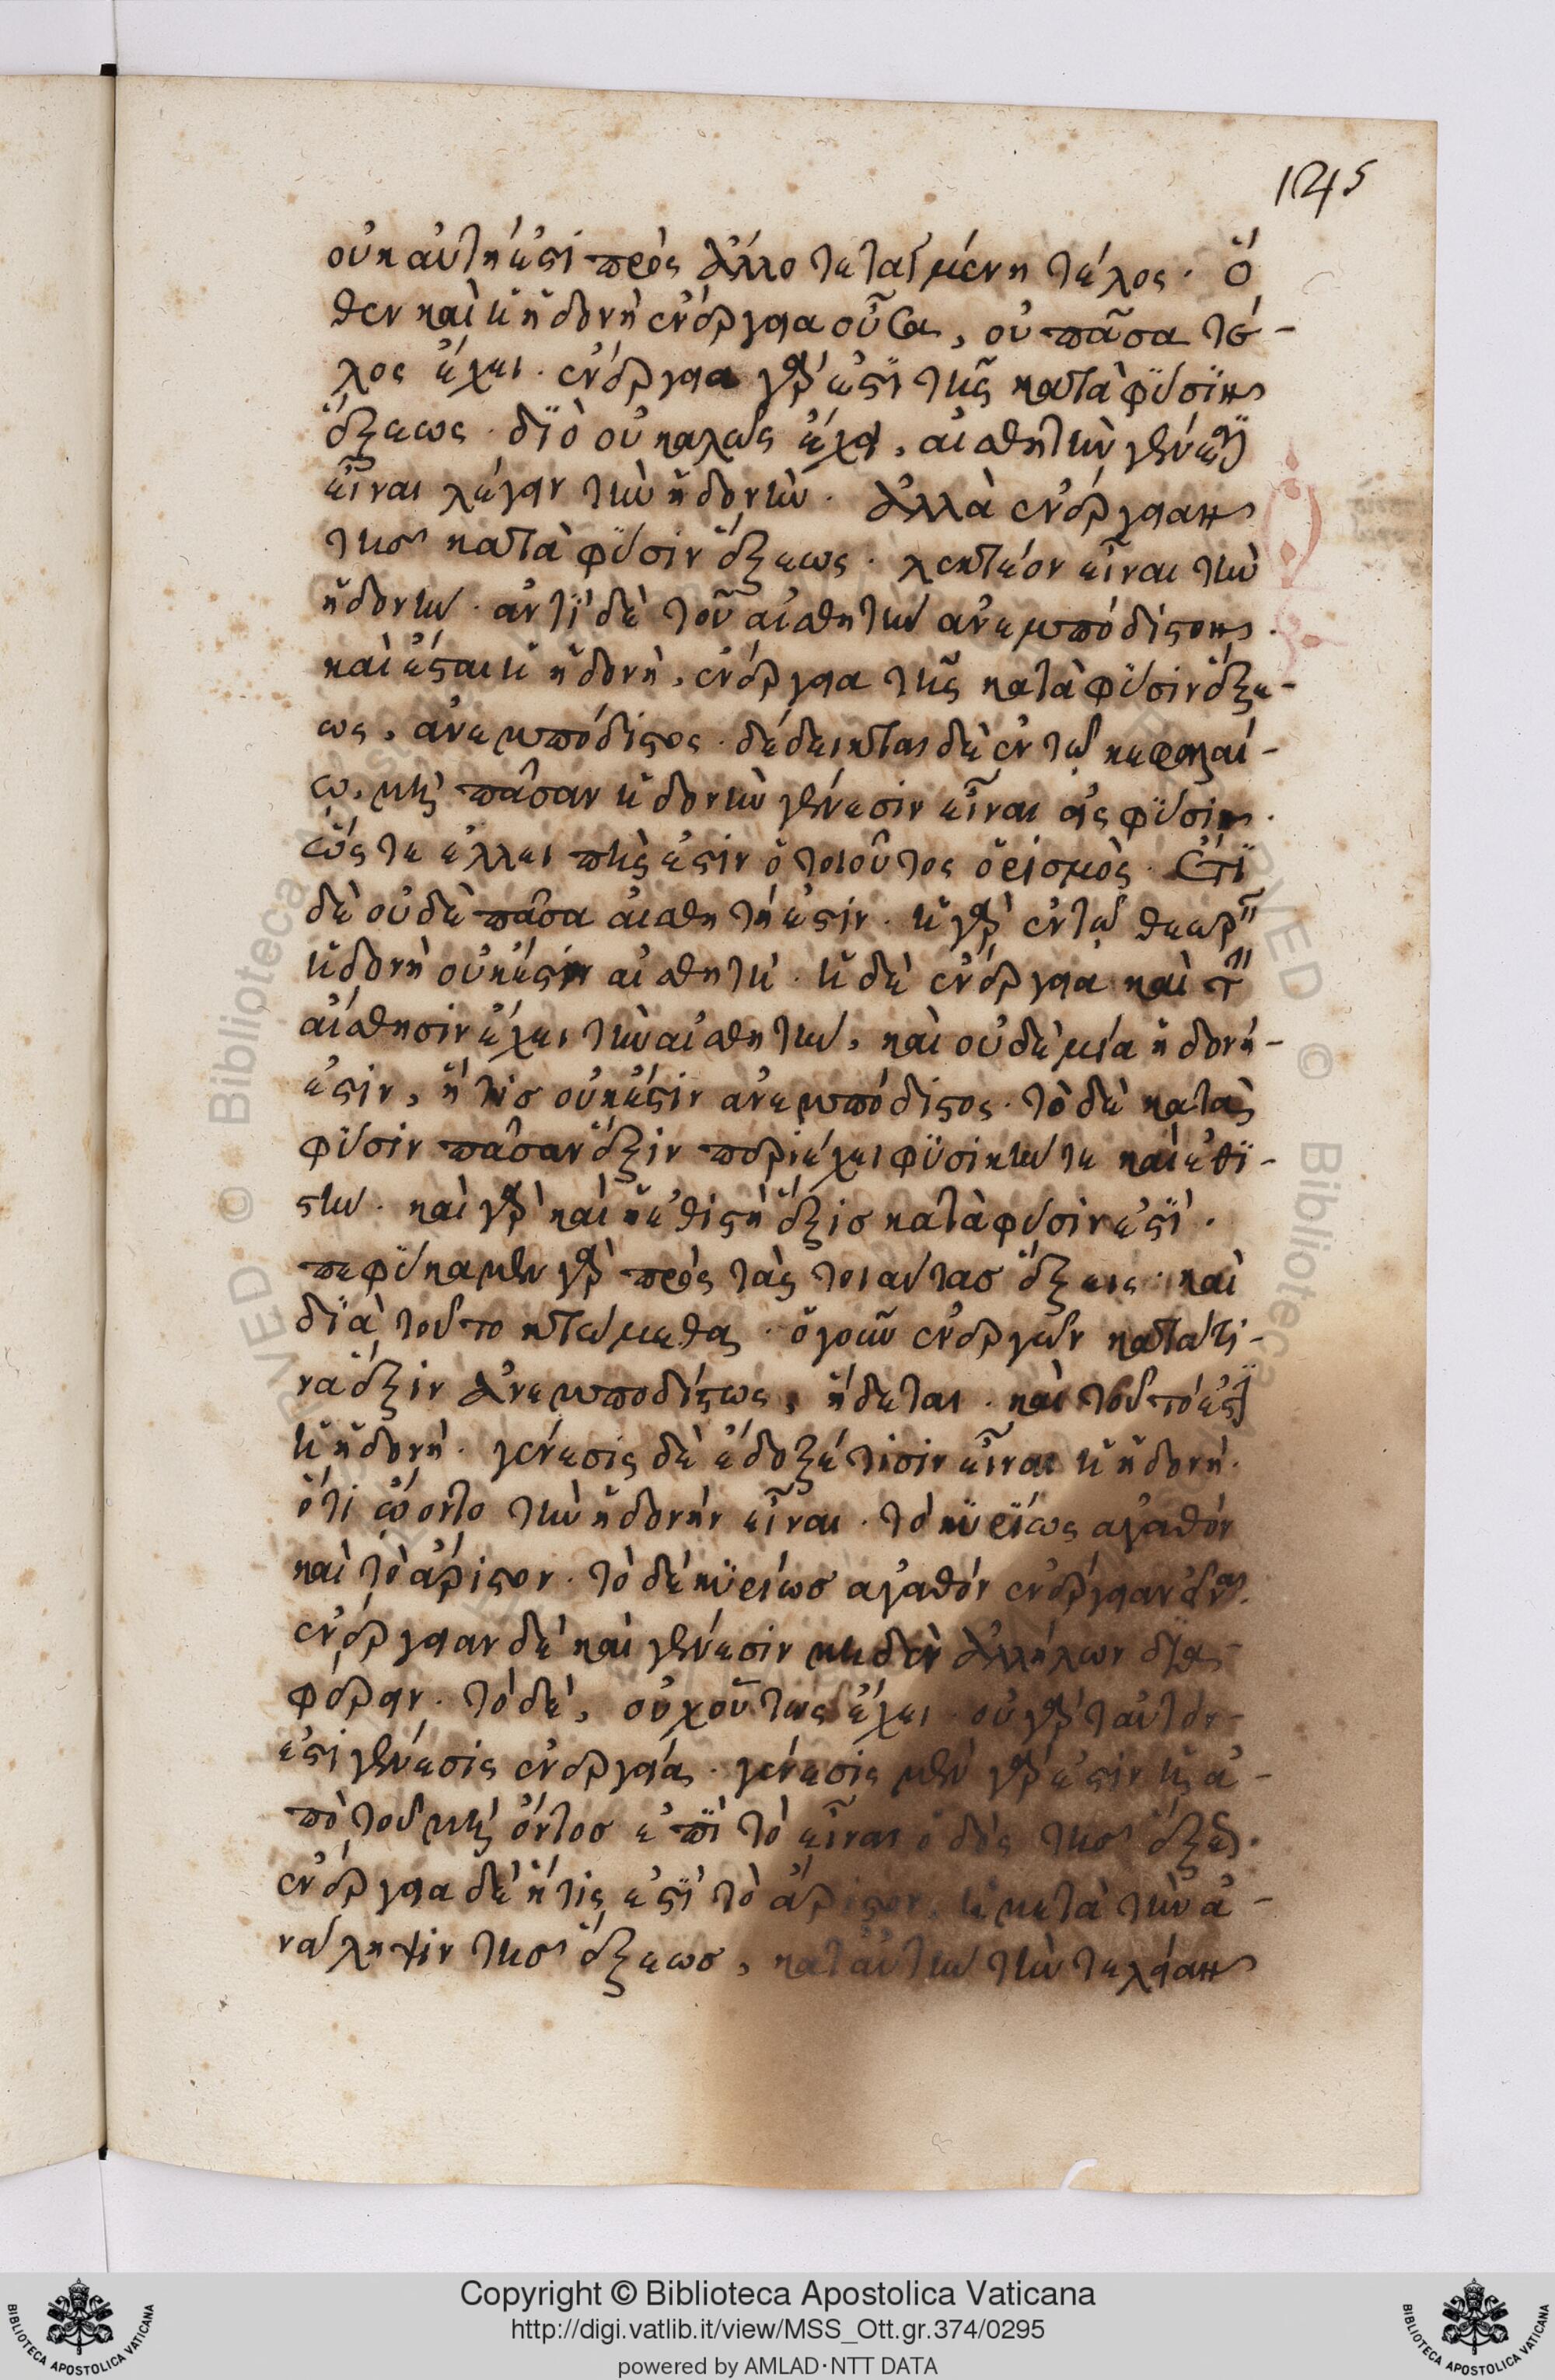 145
οὐκ αὐτὴ ἐστὶ πρὸς ἄλλο τεταγμένη τέλος. ὅ
θεν καὶ ἡ ἡδονὴ ἐνέργεια οὖσα, οὐ πᾶσα τέ-
λος ἔχει. ἐνέργεια γάρ ἐστϊ τῆς κατὰ φϋσϊν
ἕξεως. δϊὸ οὐ καλῶς ἔχει, αἰσθητὴν γένεσϊ
εἶναι λέγειν τὴν ἡδονὴν. ἀλλὰ ἐνέργειαν
τῆσ κατὰ φϋσιν ἕξεως. λεκτέον εἶναι τὴν
ἡδονήν. ἀντὶ δὲ τοῦ αἰσθητήν ἀνεμπόδιστον.
καὶ ἔσται ἡ ἡδονὴ, ἐνέργεια τῆς κατὰ φύσιν ἕξε-
ως, ἀνεμπόδιστος. δέδεικται δὲ ἐν τῷ κεφαλαί-
ω, μὴ πᾶσαν ἡδονὴν γένεσιν εἶναι εἰς φϋσιν.
ὥς τε ἐλλει πὴς ἐστιν ὁ τοιοῦτος ὁρισμὸς. ἔτϊ
δὲ οὐδὲ πᾶσα αἰσθητή ἐστιν. ἡ γὰρ ἐν τῷ θεωρεῖν
ἡδονὴ οὐκ ἔστιν αἰσθητή. ἡ δὲ ἐνέργεια καὶ τὴν
αἴσθησιν ἔχει τὴν αἰσθητήν, καὶ οὐδὲ μία ἡδονή-
ἐστιν, ἥ τισ οὐκ ἔστιν ἀνεμπόδιστος. τὸ δὲ κατὰ
φύσιν πᾶσαν ἕξιν περιέχει φϋσικήν τε καὶ ἐθϊ-
στήν. καὶ γὰρ καὶ ἡ ἐθιστὴ ἕξισ κατὰ φύσιν ἐστϊ.
πεφϋκαμεν γὰρ πρὸς τὰς τοιαύτασ ἕξεις. καὶ
δϊὰ τοῦτο κτώμεθα. ὁ γοῦν ἐνεργῶν κατά τι-
να ἕξιν ἀνεμποδίστως, ἥδεται. καὶ τοῦτό ἐστϊν
ἡ ἡδονή. γένεσις δὲ ἔδοξέ τισιν εἶναι ἡ ἡδονή.
ὅτι ᾤοντο τὴν ἡδονήν εἶναι. τὸ κϋρϊως ἀγαθόν
καὶ τὸ ἄριστον. τὸ δὲ κϋρίωσ ἀγαθόν ἐνέργειαν εἶναι.
ἐνέργειαν δὲ καὶ γένεσιν μηδὲν ἀλλήλων δϊα-
φέρειν. τὸ δὲ, οὐχ οὕτως ἔχει. οὐ γάρ ταὐτόν-
ἐστι γένεσις ἐνεργείᾳ. γένεσις μὲν γάρ ἐστιν ἡ ἀ-
πὸ τοῦ μὴ ὄντοσ ἐπϊ τὸ εἶναι ὁδὸς τῆσ ἕξεως.
ἐνέργεια δὲ ἥτις ἐστϊ τὸ ἄριστον, ἡ μετὰ τὴν ἀ-
νάληψιν τῆσ ἕξεωσ, κατ αὐτὴν τὴν τελείαν